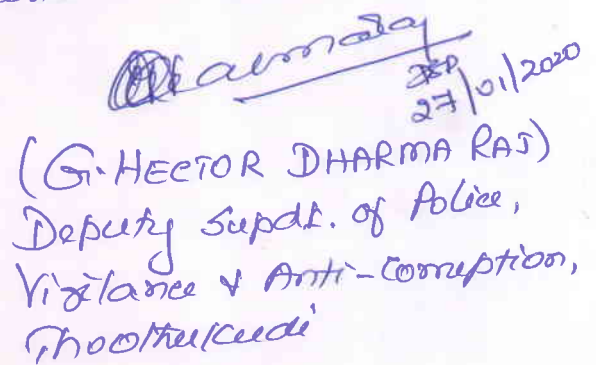 Dharmaraj
DSP
27/01/2020
(G. HECTOR DHARMA RAJ)
Deputy Supdt. of Police,
Vigilance & Anti-Corruption,
Thoothukudi